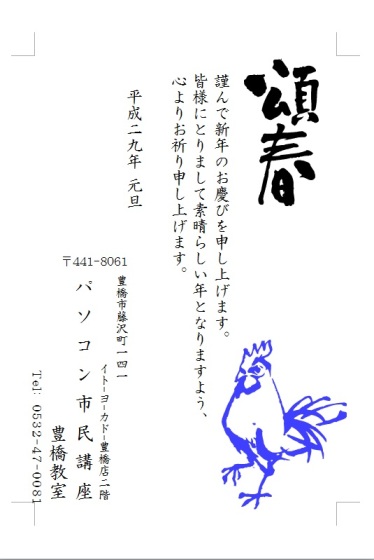 頌春
謹んで新年のお慶びを申し上げます。
皆様にとりまして素晴らしい年となりますよう、
心よりお祈り申し上げます。
平成二九年 元旦
〒441-8061
豊橋市藤沢町一四一
イトーヨーカドー豊橋店二階
パソコン市民講座
豊橋教室
Tel: 0532-47-0081